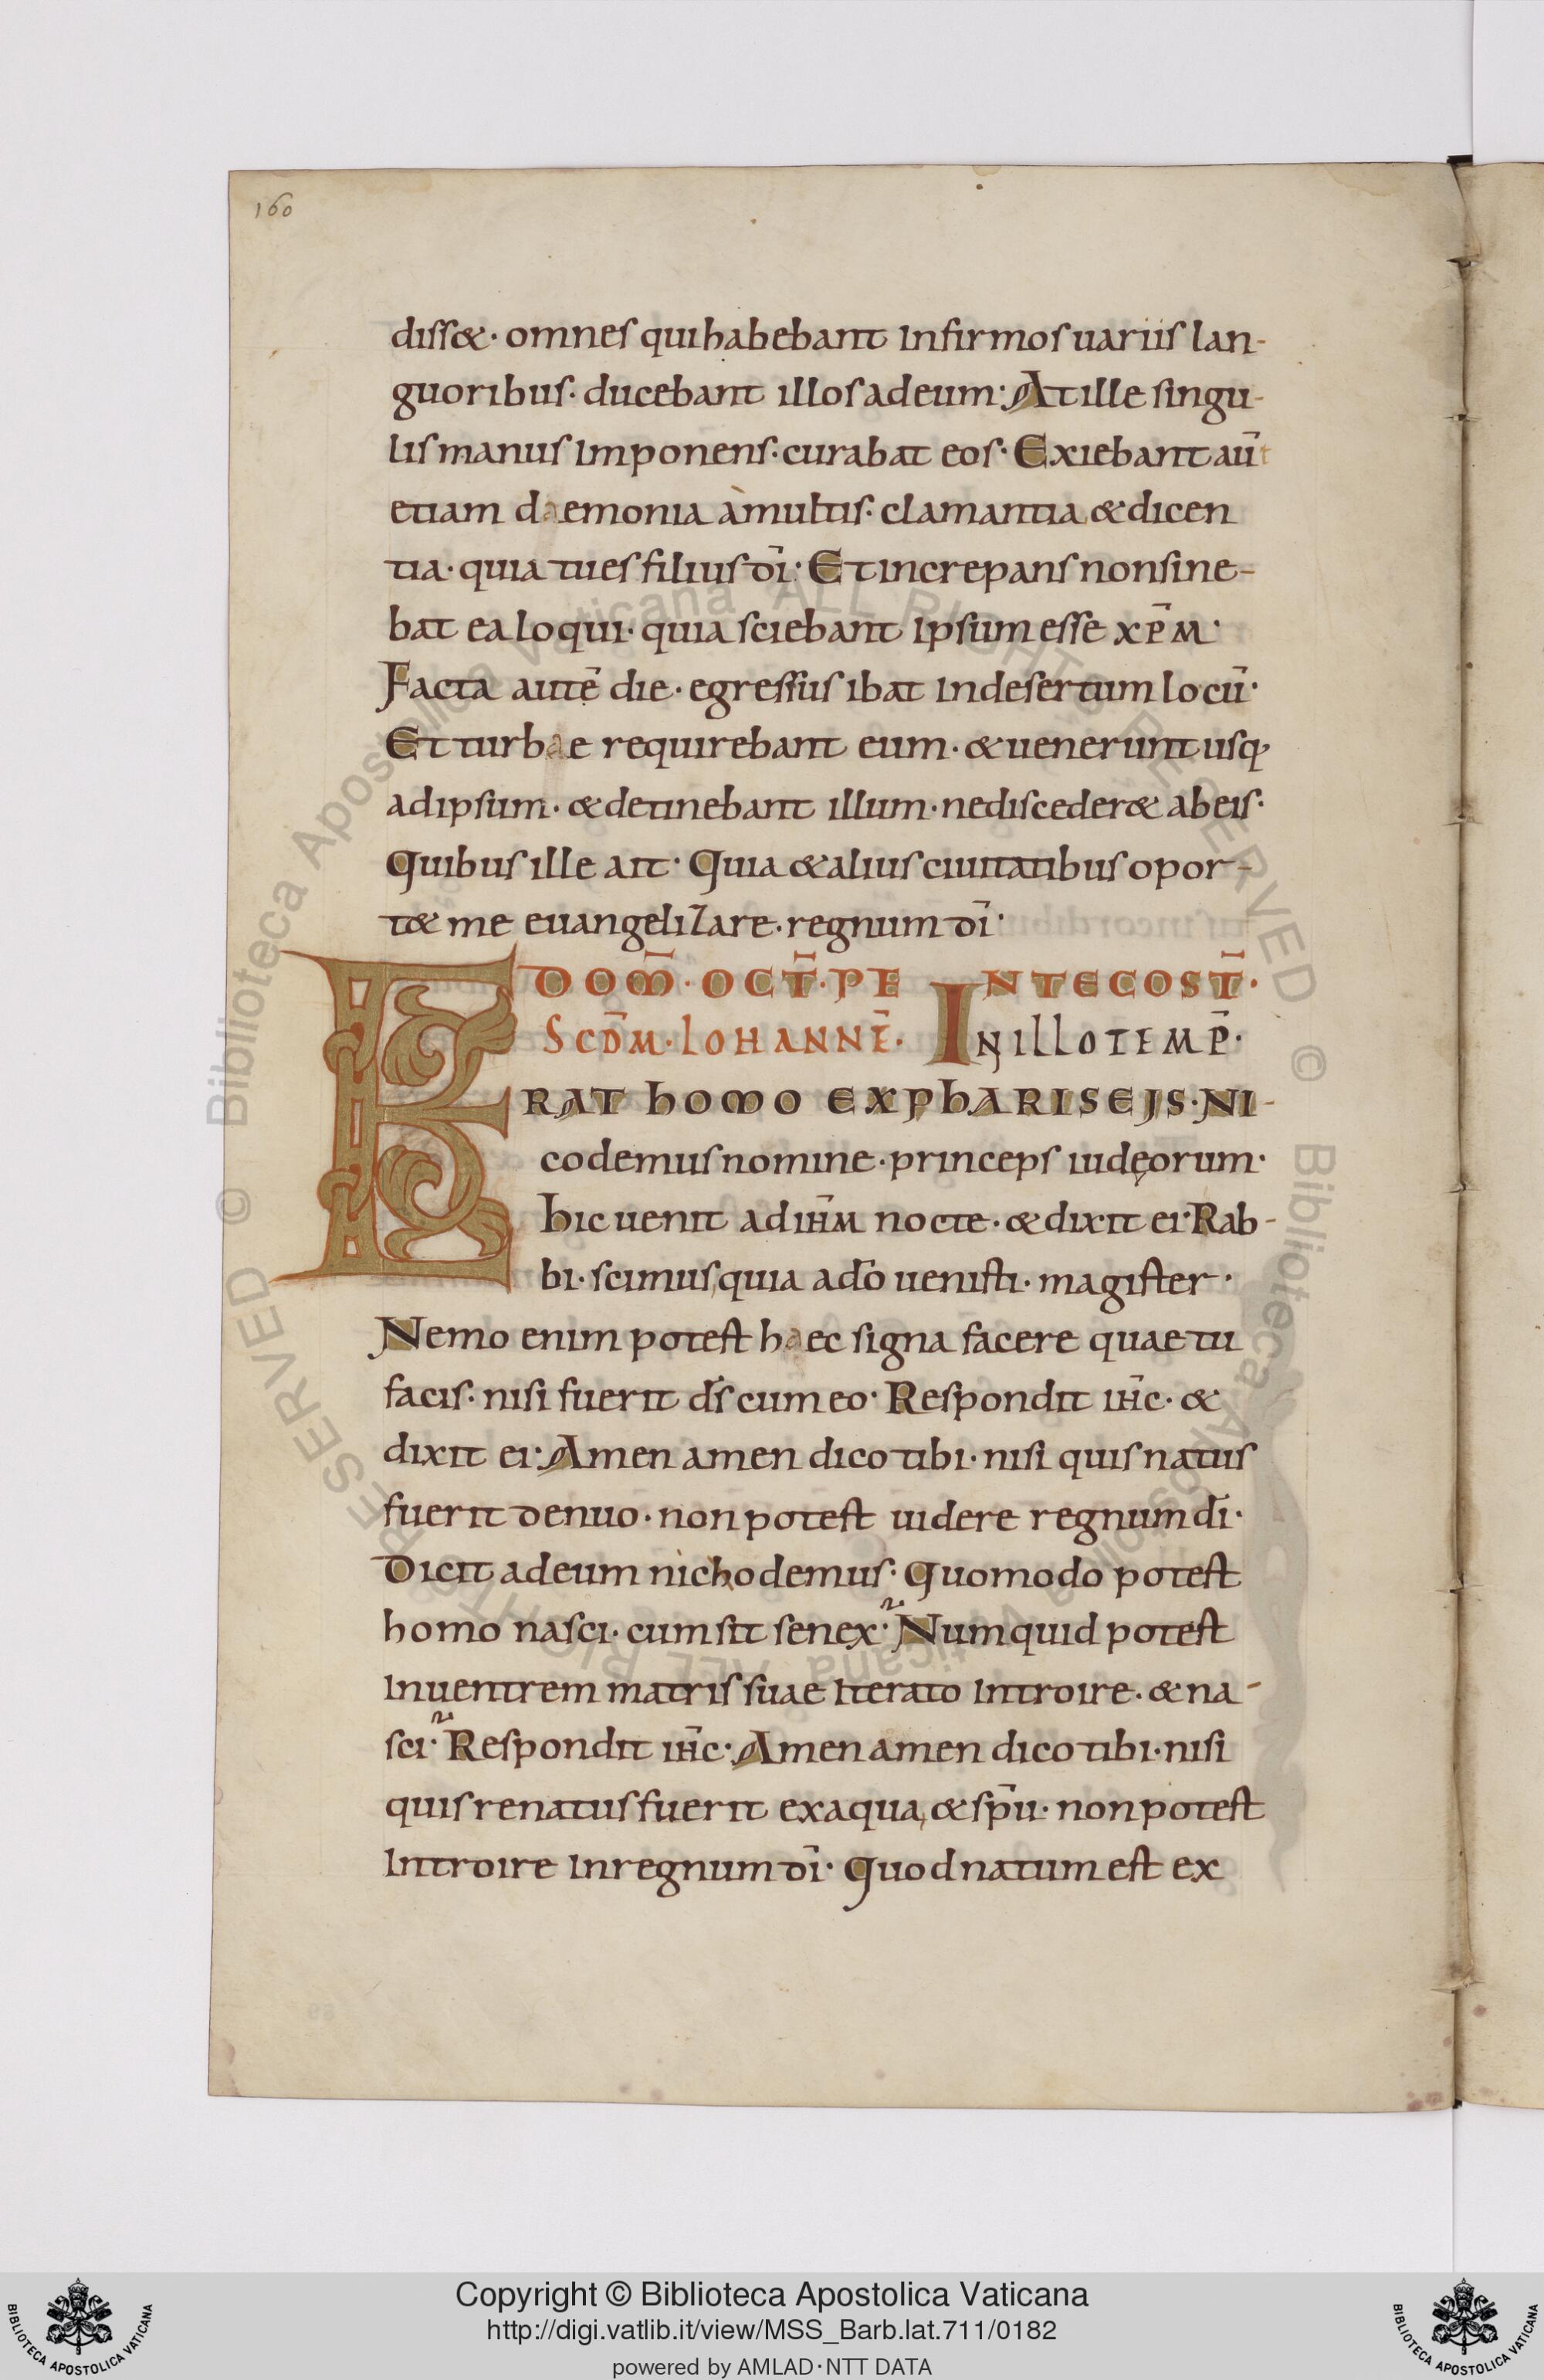 160
diss&· omnes qui habebant infirmos uariis lan-
guoribus· ducebant illos ad eum· At ille singu-
lis manus imponens· curabat eos· Exiebant aū t
etiam daemonia a multis· clamantia & dicen
tia· quia tu es filius dī· Et increpans non sine-
bat ea loqui· quia sciebant ipsum esse xp̄m·
Facta autē die· egressus ibat in desertum locū·
Et turbae requirebant eum· & uenerunt usq;
ad ipsum· & detinebant illum· ne disceder& ab eis·
Quibus ille ait· Quia & alius ciuitatibus opor-
t& me euangelizare· regnum dī·
DOM̄· OCT̄· PENTECOST̄·
SCD̄M· IOHANNĒ· IN ILLO TEMP̄·
ERAT HOMO EX PHARISEIS· NI-
codemus nomine· princeps iudęorum·
hic uenit ad ih̄m nocte· & dixit ei· Rab-
bi· scimus quia a dō uenisti· magister·
Nemo enim potest haec signa facere quae tu
facis· nisi fuerit ds̄ cum eo· Respondit ih̄c· &
dixit ei· Amen amen dico tibi· nisi quis natus
fuerit denuo· non potest uidere regnum dī·
Dicit ad eum nichodemus· Quomodo potest
homo nasci· cum sit senex· Numquid potest
in uentrem matris suae iterato introire· & na-
sci· Respondit ih̄c· Amen amen dico tibi· nisi
quis renatus fuerit ex aqua & sp̄u· non potest
introire in regnum dī· Quod natum est ex
© Biblioteca Apostolica Vaticana ALL RIGHTS RESERVED
© Biblioteca Apostolica Vaticana ALL RIGHTS RESERVED
Copyright © Biblioteca Apostolica Vaticana
http://digi.vatlib.it/view/MSS_Barb.lat.711/0182
powered by AMLAD·NTT DATA
BIBLIOTECA APOSTOLICA VATICANA
BIBLIOTECA APOSTOLICA VATICANA